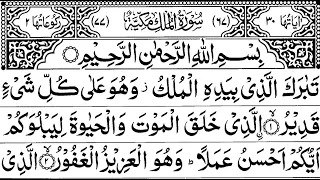 اٰيَاتُهَا ٣٠ (٦٧) سُوْرَةُ الْمُلْكِ مَكِّيَّةٌ (٧٧) رُكُوْعَاتُهَا ٢
بِسْمِ اللّٰهِ الرَّحْمٰنِ الرَّحِيْمِ
تَبٰرَكَ الَّذِيْ بِيَدِهِ الْمُلْكُ ز وَهُوَ عَلٰى كُلِّ شَيْءٍ
قَدِيْرُ ۙ﴿١﴾ اِۨلَّذِيْ خَلَقَ الْمَوْتَ وَالْحَيٰوةَ لِيَبْلُوَكُمْ
اَيُّكُمْ اَحْسَنُ عَمَلًا ؕ وَهُوَ الْعَزِيْزُ الْغَفُوْرُ ۙ﴿٢﴾ الَّذِيْ